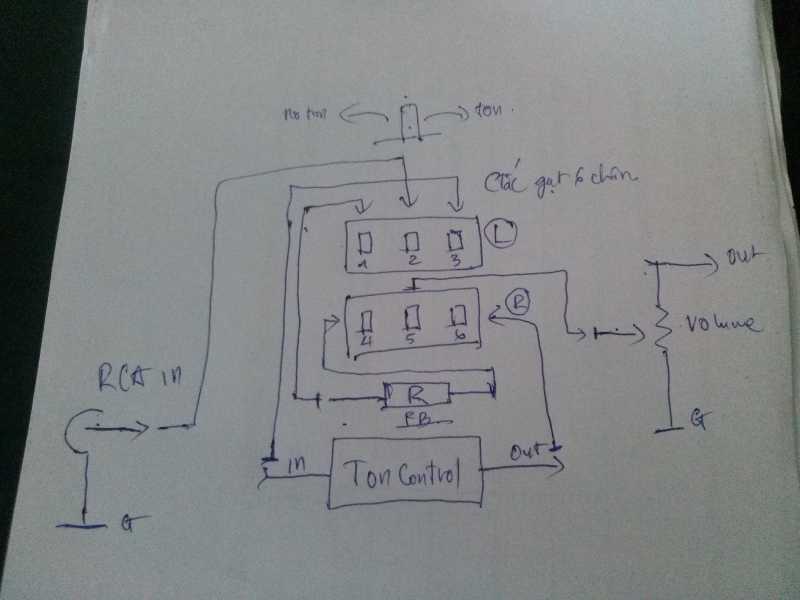 no ton
ton.
Cắc gạt 6 chân
L
1 2 3
R
4 5 6
out
Volume
G
RCA in
R
in
Out
Ton Control
G